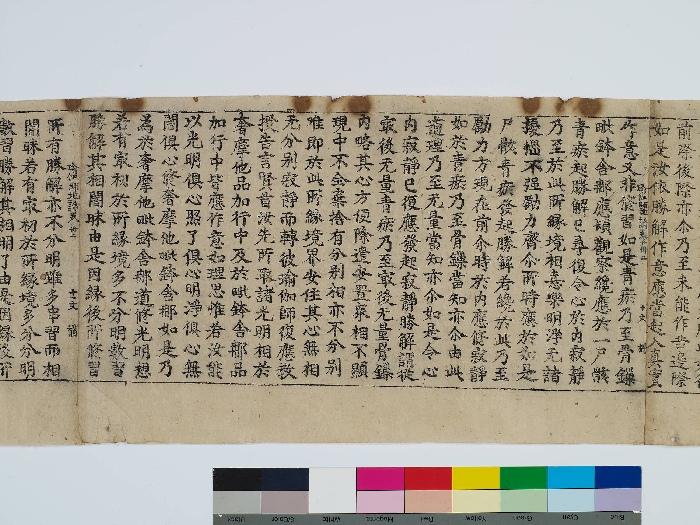 前際後際亦尒乃至未能作
如是汝依勝解作意應當趣入真實
作意又非修習如是青瘀乃至骨鏁
毗鉢舍那應頓觀察纔應於一尸骸
青瘀起勝解已尋復令心於內寂靜
乃至於此所緣境相意樂明淨無諸
擾惱不強勵力齊尒所時應於如是
尸骸青瘀發起勝解若纔於此乃至
勵力方現在前尒時於內應修寂靜
如於青瘀乃至骨鏁當知亦尒由此
道理乃至無量當知亦尒如是令心
內寂靜已復應發起寂靜勝解謂從
最後無量青瘀乃至最後無量骨鏁
內略其心方便除遣安置眾相不顯
現中不全棄捨有分別相亦不分別
唯即於此所緣境界安住其心無相
無分別寂靜而轉彼瑜伽師復應教
授告言賢首汝先所取諸光明相於
奢摩他品加行中及於毗鉢舍那品
加行中皆應作意如理思惟若汝能
以光明俱心照了俱心明淨俱心無
闇俱心修奢摩他毗鉢舍那如是乃
為於奢摩他毗鉢舍那道修光明想
若有最初於所緣境多不分明數習
勝解其相闇昧由是因緣後所修習
所有勝解亦不分明雖多串習而相
闇昧若有最初於所緣境多分分明
數習勝解其相明了由是因緣後所
Blue
Cyan
Green
Yellow
Red
Magenta
White
3/Color
Black